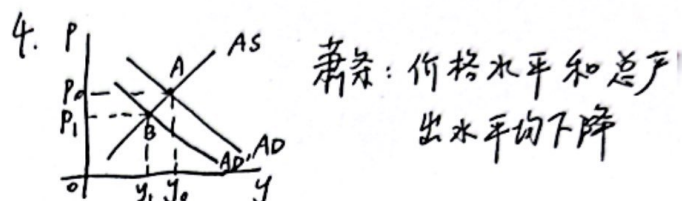 4.
P
AS
A
P₀
P₁
B
AD'
AD
0
y₁
y₀
y
萧条：价格水平和总产
出水平均下降